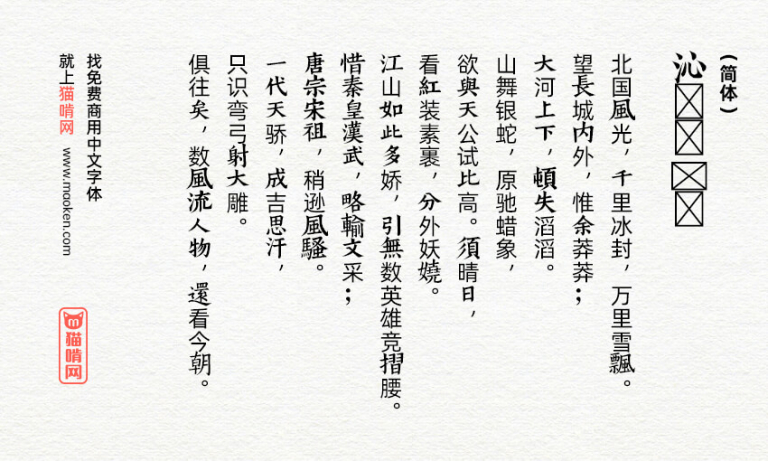 (简体)
沁
北国風光，千里冰封，万里雪飄。
望長城内外，惟余莽莽；
大河上下，頓失滔滔。
山舞银蛇，原驰蜡象，
欲與天公试比高。須晴日，
看紅装素裹，分外妖嬈。
江山如此多娇，引無数英雄竞摺腰。
惜秦皇漢武，略輸文采；
唐宗宋祖，稍逊風騷。
一代天骄，成吉思汗，
只识弯弓射大雕。
俱往矣，数風流人物，還看今朝。
找免费商用中文字体
就上猫啃网 www.mooken.com
猫啃网